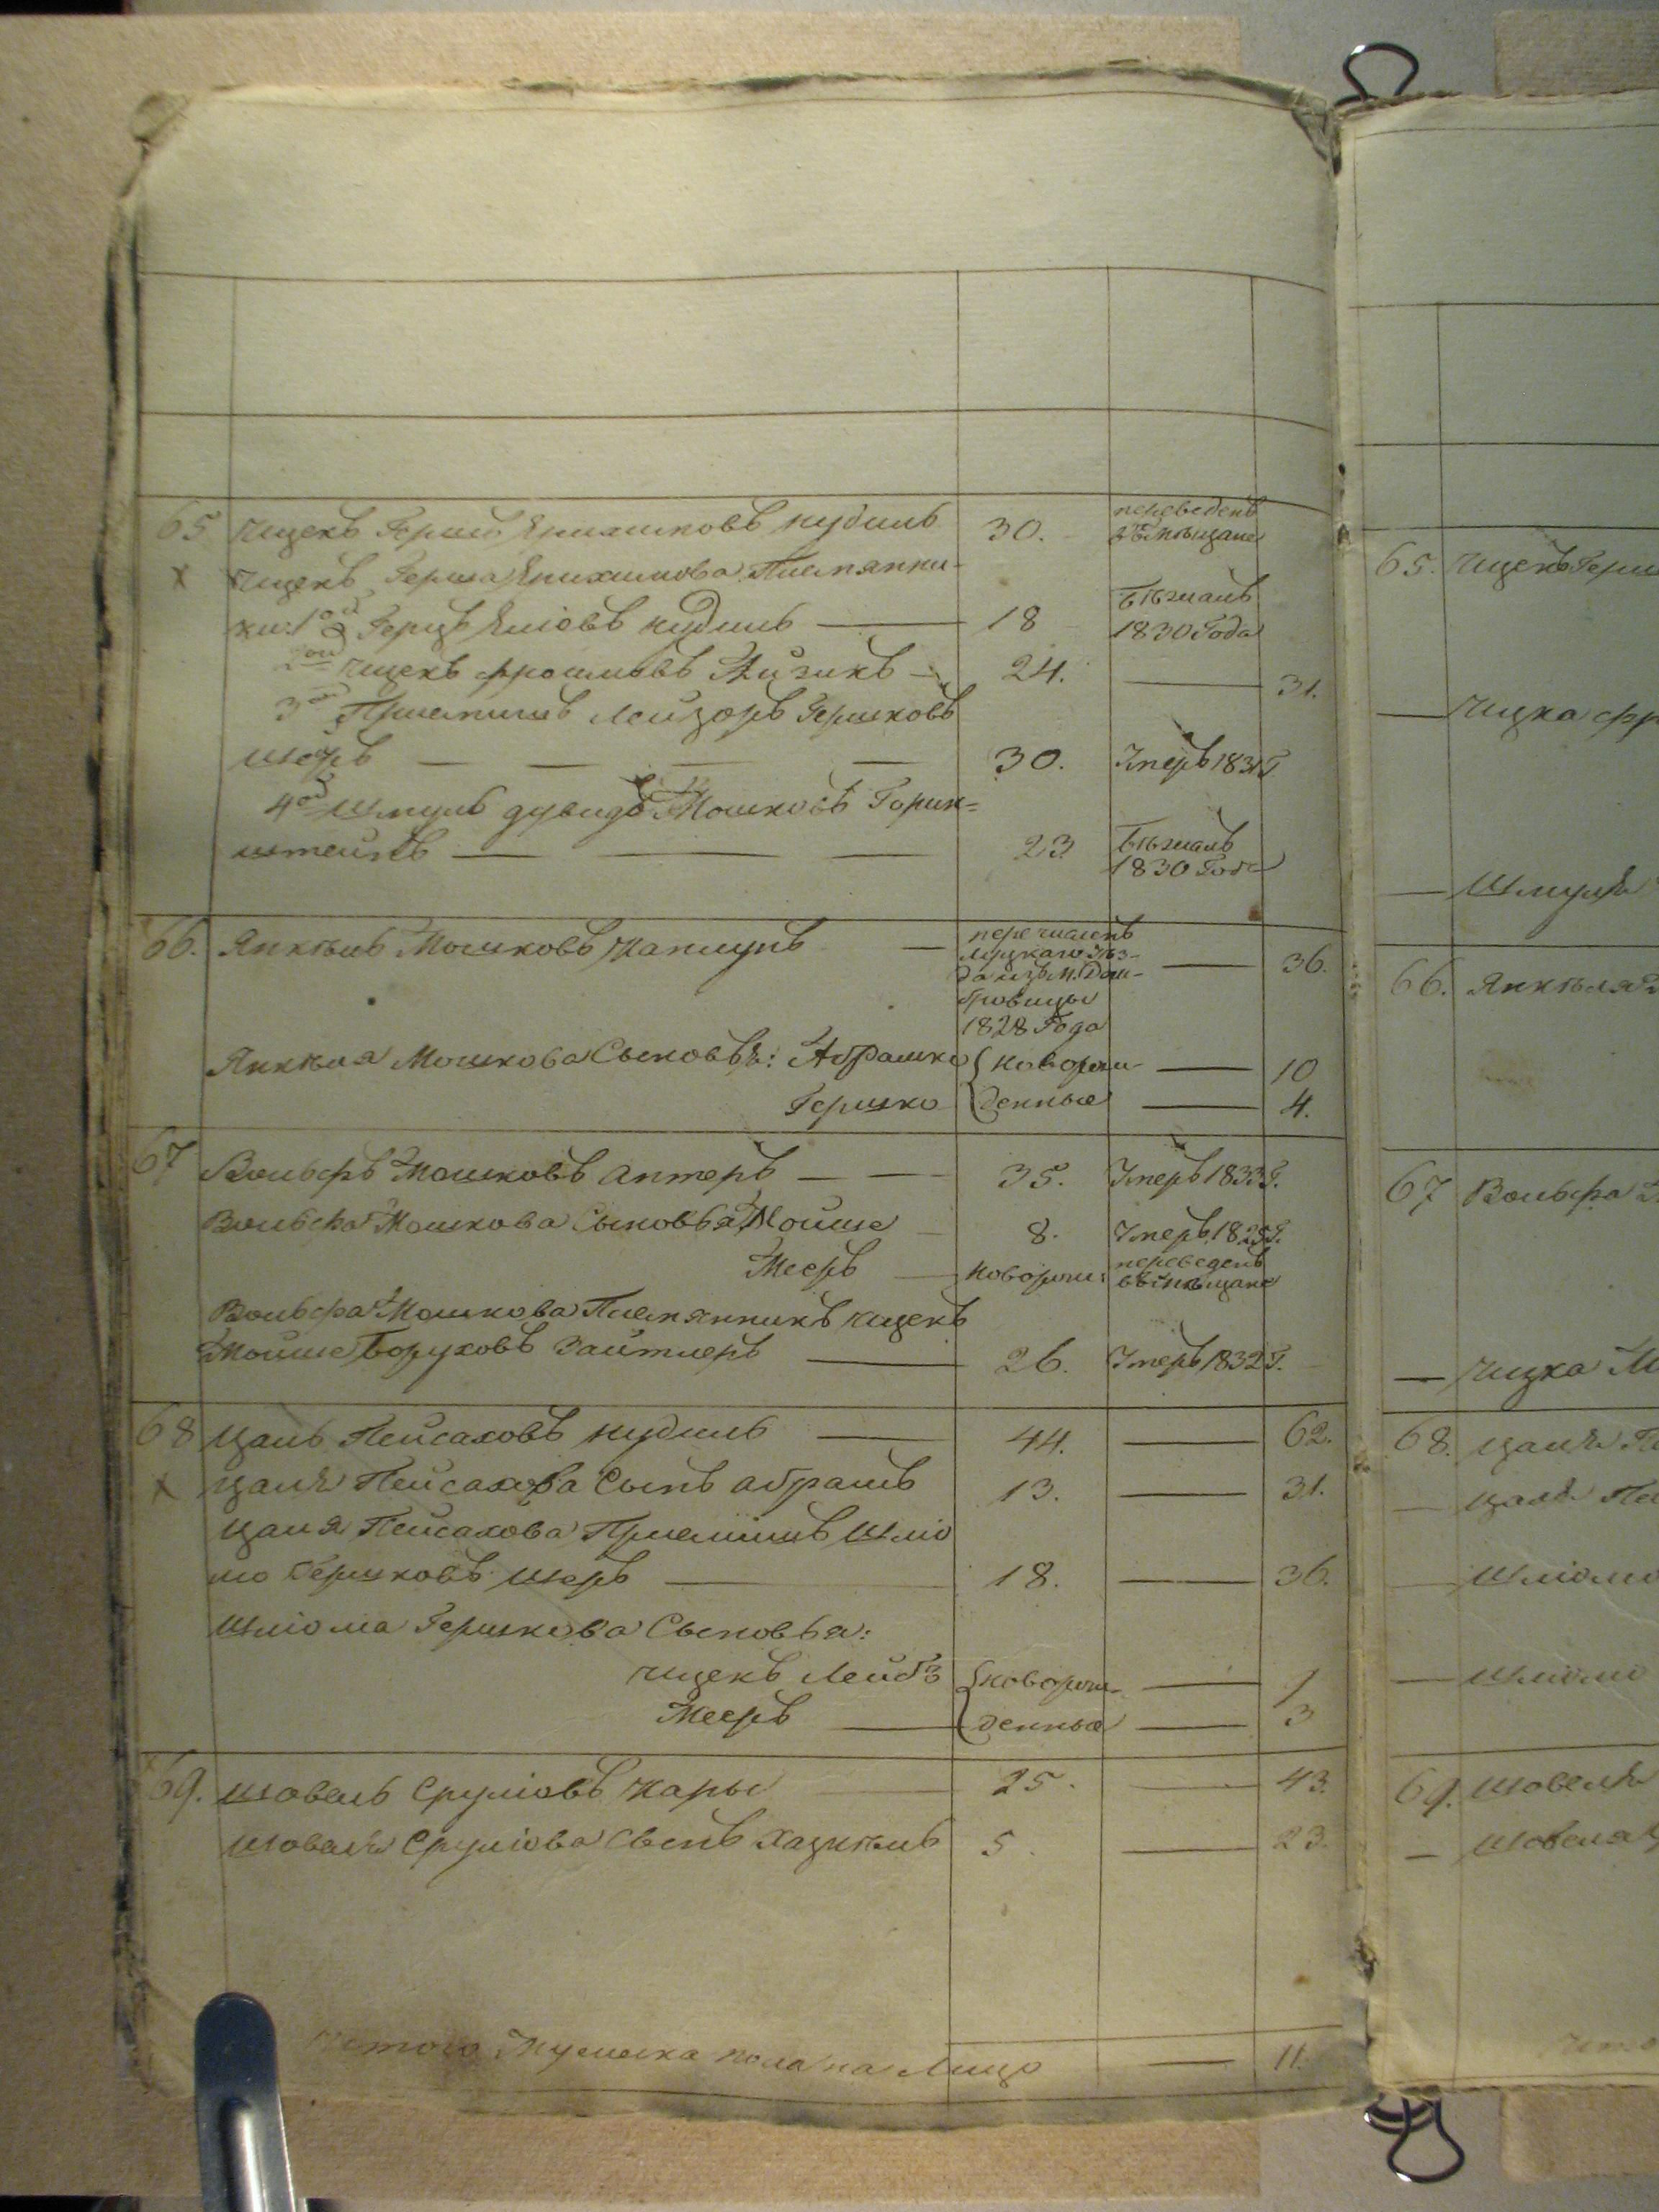 65 Ицекъ Герш Ерихимовъ Кудишъ 30. переведенъ
въ мѣщане
х Ицекъ Герша Ерихимова Племянни-
ки: 1ой Герцъ Еліовъ Кудишъ — 18 Бѣжалъ
1830 Года
2ой Ицекъ Фроимовъ Айзикъ — 24. — 31.
3й Пріемышъ Лейзоръ Гершковъ
Шеръ — — — — 30. Умеръ 1831 Г.
4ой Шмуль Дувидъ Мошковъ Горин=
штейнъ — — — 23 Бѣжалъ
1830 Года
66. Янкель Мошковъ Каплунъ — перечисленъ — 36.
Луцкаго уѣз-
да изъ м. Дом-
бровицы
1828 Года
Янкеля Мошкова Сыновья: Абрамко новорож- — 10
Гершко денные — 4.
67 Вольфъ Мошковъ Аптеръ — — 35. Умеръ 1833 Г.
Вольфа Мошкова Сыновья Мойше — 8. Умеръ 1825 Г.
Мееръ — новорож: переведенъ
въ мѣщане
Вольфа Мошкова Племянникъ Ицекъ
Мойше Боруховъ Зайтлеръ — 26. Умеръ 1832 Г.
68 Цаль Пейсаховъ Кудишъ — 44. — 62.
х Цаля Пейсахова Сынъ Абрамъ 13. — 31.
Цаля Пейсахова Пріемышъ Шліо
мо Гершковъ Шеръ — 18. — 36.
Шліома Гершкова Сыновья:
Ицекъ Лейбъ новорож- — 1
Мееръ — денные — 3
69. Шовель Сруліовъ Кары — 25. — 43.
Шовеля Сруліова Сынъ Хацкель 5. — 23.
Итого Мужеска пола на лицо — 11.
65. Ицекъ Герш
— Ицка Фр
— Шмуля
66. Янкеля
67 Вольфа
— Ицка М
68. Цаля П
— Цаля Пе
— Шліомо
— Шліомо
69. Шовеля
— Шовеля
Ито